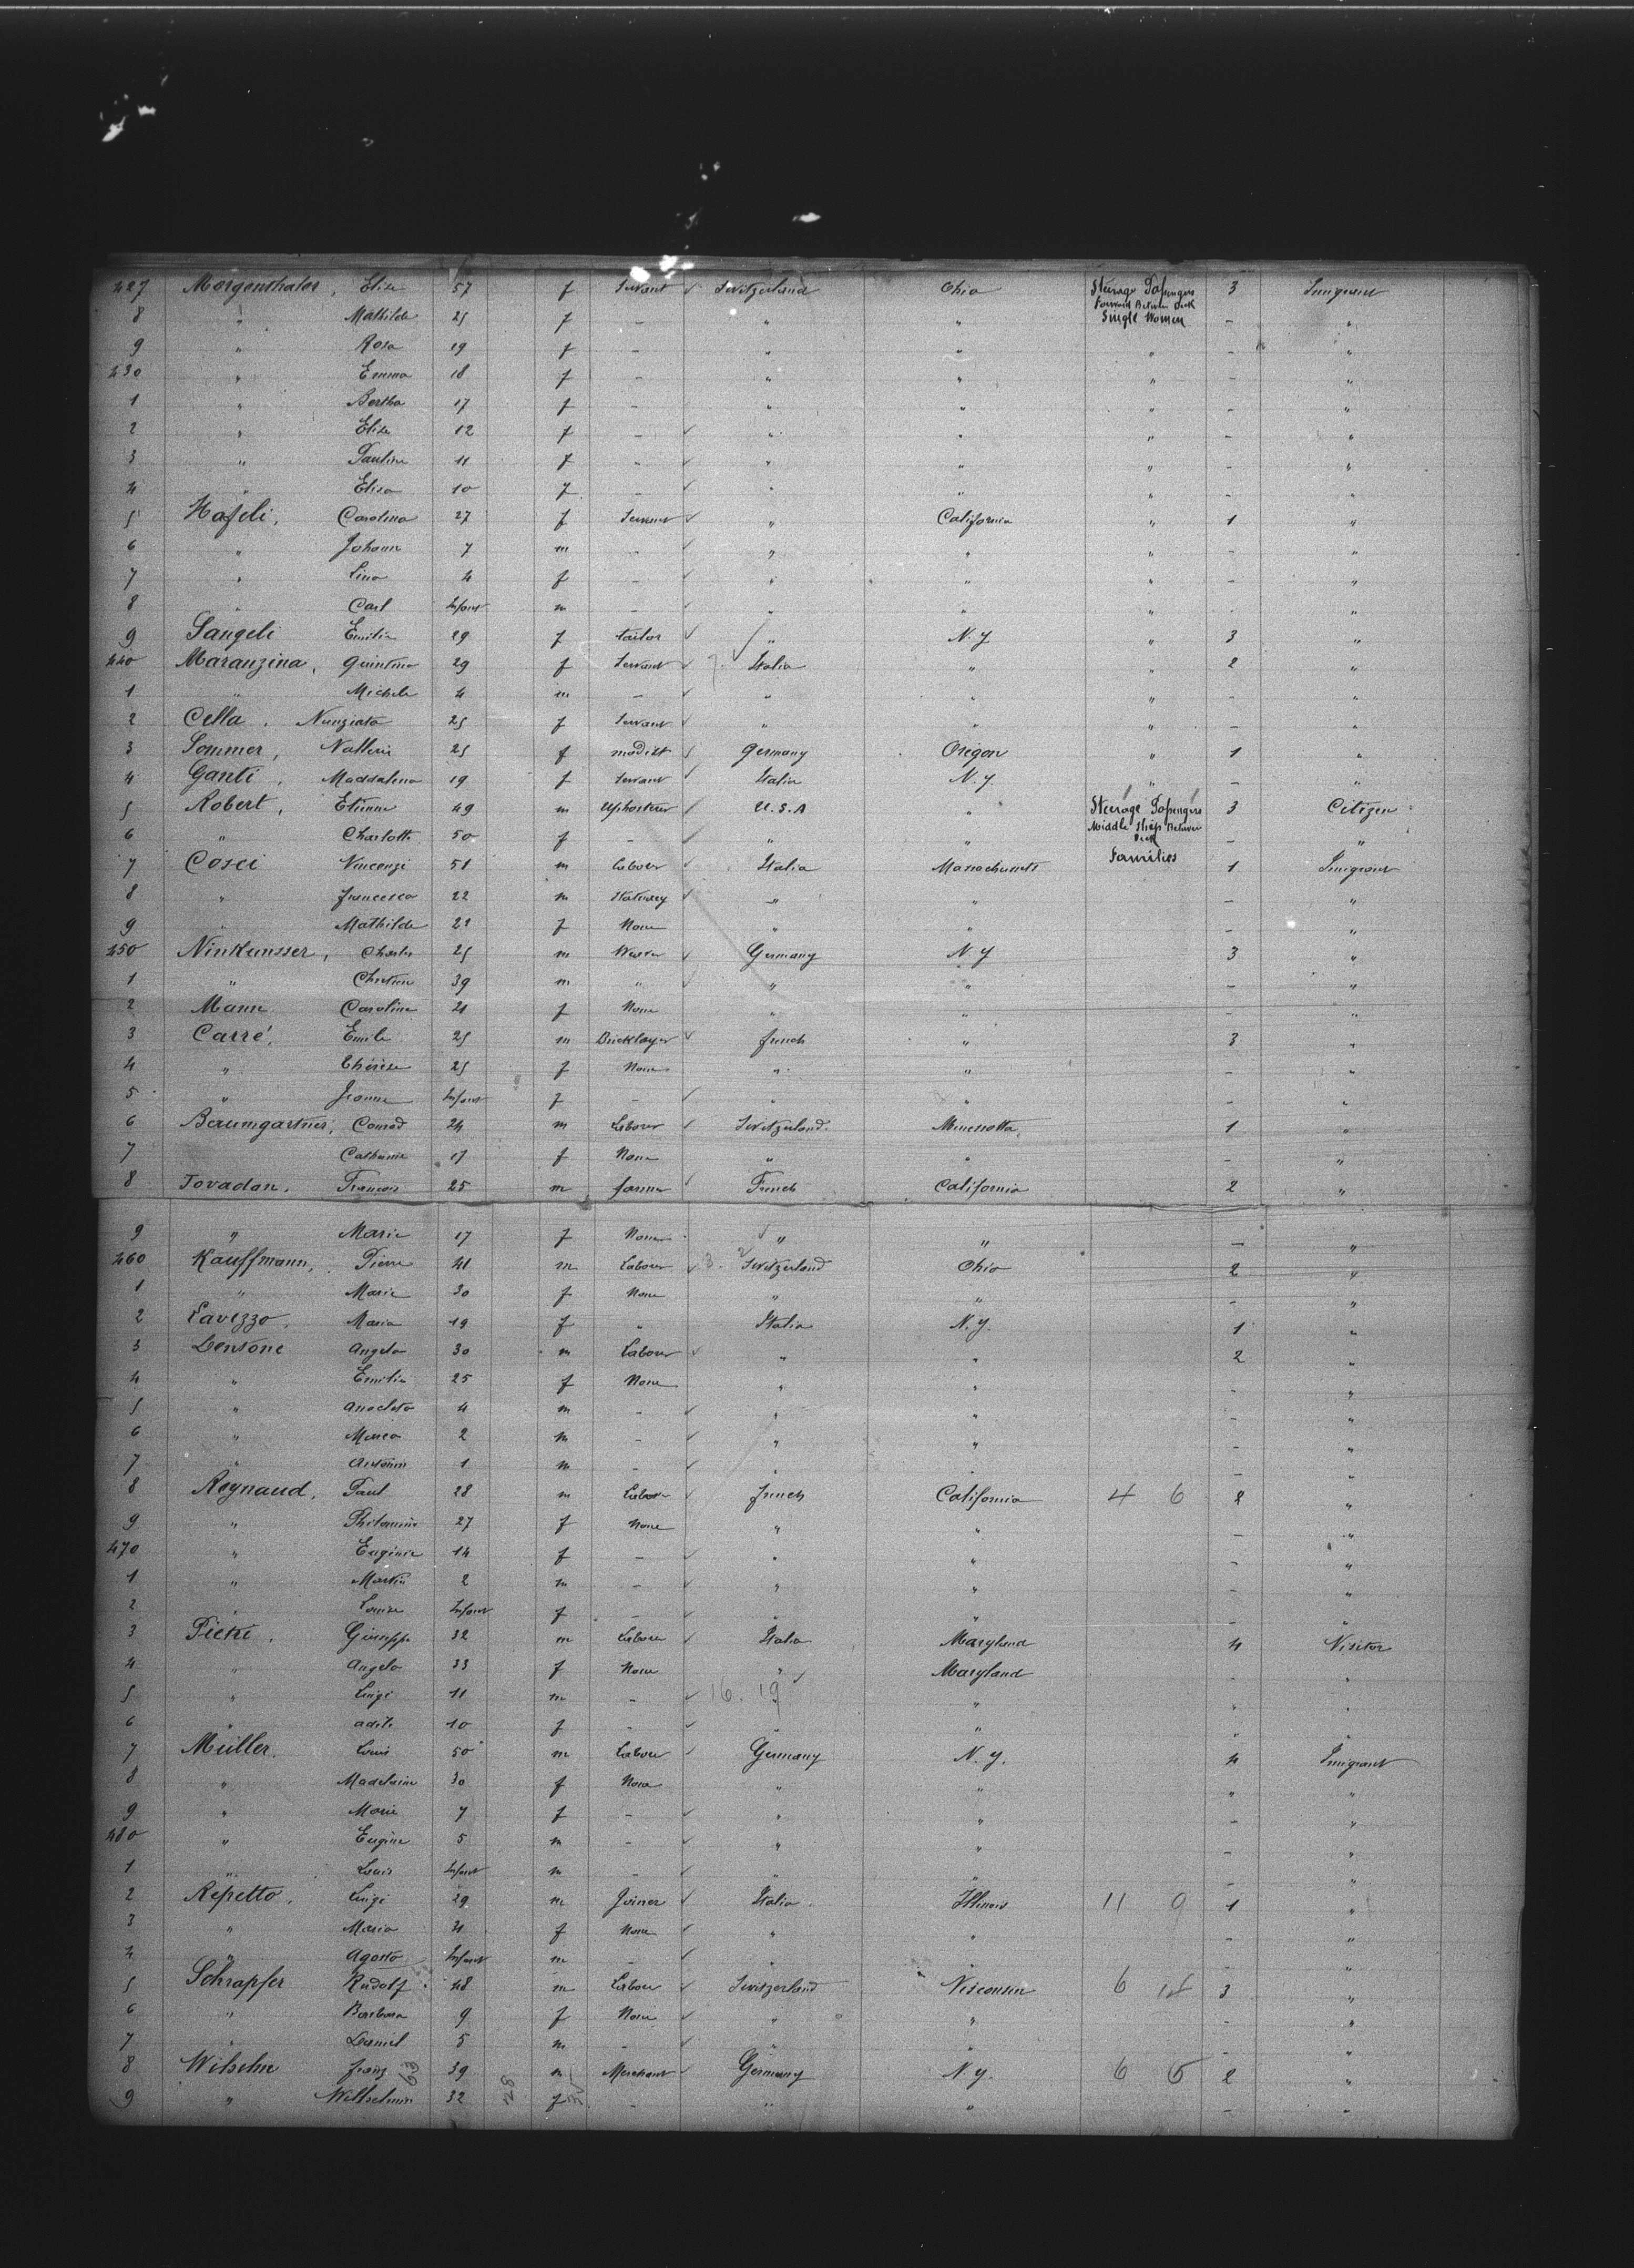 427 Morgenthaler, Elise 57 f Servant ✓ Switzerland Ohio Steerage Passengers Forward Between Deck Single Women 3 Imigrant
8 " Mathilde 25 f - " " - "
9 " Rosa 19 f - " " " - "
430 " Emma 18 f - " " " - "
1 " Bertha 17 f - " " " - "
2 " Elise 12 f - ✓ " " " - "
3 " Pauline 11 f - ✓ " " " - "
4 " Elisa 10 f - ✓ " " " - "
5 Hafeli, Carolina 27 f Servant ✓ " California " 1 "
6 " Johann 7 m - ✓ " " " - "
7 " Lina 4 f - ✓ " " " - "
8 " Carl Infant m - ✓ " " " - "
9 Sangeli Emilie 29 f tailor ✓ " N.Y " 3 "
440 Maranzina, Quintina 29 f Servant ✓ Italia " " 2 "
1 " Michele 4 m - ✓ " " " - "
2 Cella. Nunziata 25 f Servant ✓ " " " - "
3 Sommer, 25 f modist Germany Oregon " 1 "
4 Ganti, Maddalena 19 f Servant ✓ Italia N.Y. " - "
5 Robert, Etienne 49 m U.S.A " Steerage Passengers Middle Ship Between Deck Families 3 Citizen
6 " Charlotte 50 f - ✓ " " - "
7 Cosci Vincenzi 51 m Labour ✓ Italia Massachusets 1 Imigrant
8 " Francesco 22 m ✓ " " - "
9 " Mathilde 22 f None " " - "
450 Ninkunsser, Charles 25 m ✓ Germany N.Y 3 "
1 " 39 m " ✓ " " - "
2 Mann Caroline 21 f None " " - "
3 Carré, Emile 25 m Bricklayer ✓ french " 3 "
4 " Thérèse 25 f None " " - "
5 " Jeanne Infant f - ✓ " " - "
6 Baumgartner, Conrad 24 m Laborer ✓ Switzerland Minessotta 1 "
7 Catharine 17 f None " " - "
8 Tovadan, Francois 25 m farmer ✓ French California 2 "
9 " Marie 17 f None " " - "
460 Kauffmann, Pierre 41 m Labour ✓ Switzerland Ohio 2 "
1 " Marie 30 f None " " - "
2 Maria 19 f " Italia N.Y. 1 "
3 Densone Angelo 30 m Labour ✓ " " 2 "
4 " Emilia 25 f None " " - "
5 " Anacleto 4 m - ✓ " " - "
6 " Marco 2 m - ✓ " " - "
7 " Antonin 1 m - ✓ " " - "
8 Reynaud, Paul 28 m Labour ✓ french California 4 6 2 "
9 " Philomine 27 f None " " - "
470 " Euginie 14 f - ✓ " " - "
1 " Martin 2 m - ✓ " " - "
2 " Louise Infant f - ✓ " " - "
3 Pietri, Giuseppe 32 m Labour ✓ Italia Maryland 4 Visitor
4 " Angela 33 f None " Maryland - "
5 " Luigi 11 m - ✓ 16. 19 " " "
6 " 10 f - ✓ " " " "
7 Müller. Louis 50 m Labour ✓ Germany N.Y. 4 Imigrant
8 " Madelaine 30 f None " " " "
9 " Marie 7 f - ✓ " " - "
480 " Eugine 5 m - ✓ " " - "
1 " Louis Infant m - ✓ " " - "
2 Repetto, Luigi 29 m Joiner ✓ Italia Illinois 11 9 1 "
3 " Maria 21 f None ✓ " " - "
4 " Agosto Infant m - ✓ " " - "
5 Schrapfer Rudolf 48 m Labour ✓ Switzerland Wisconsin 6 14 3 "
6 " Barbara 9 f None ✓ " " - "
7 " Daniel 5 m - ✓ " " - "
8 Franz 63 39 m Merchant ✓ Germany N.Y. 6 5 2 "
9 " Wilhelmin 32 128 f 35 - " " - "